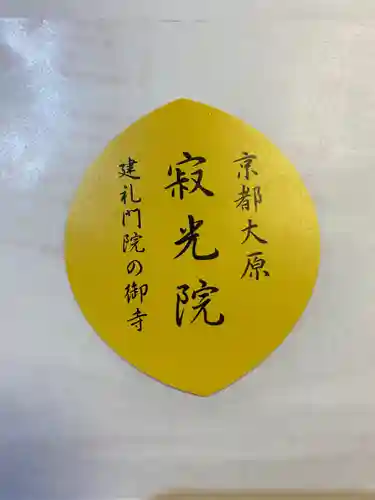 京都大原
寂光院
建礼門院の御寺